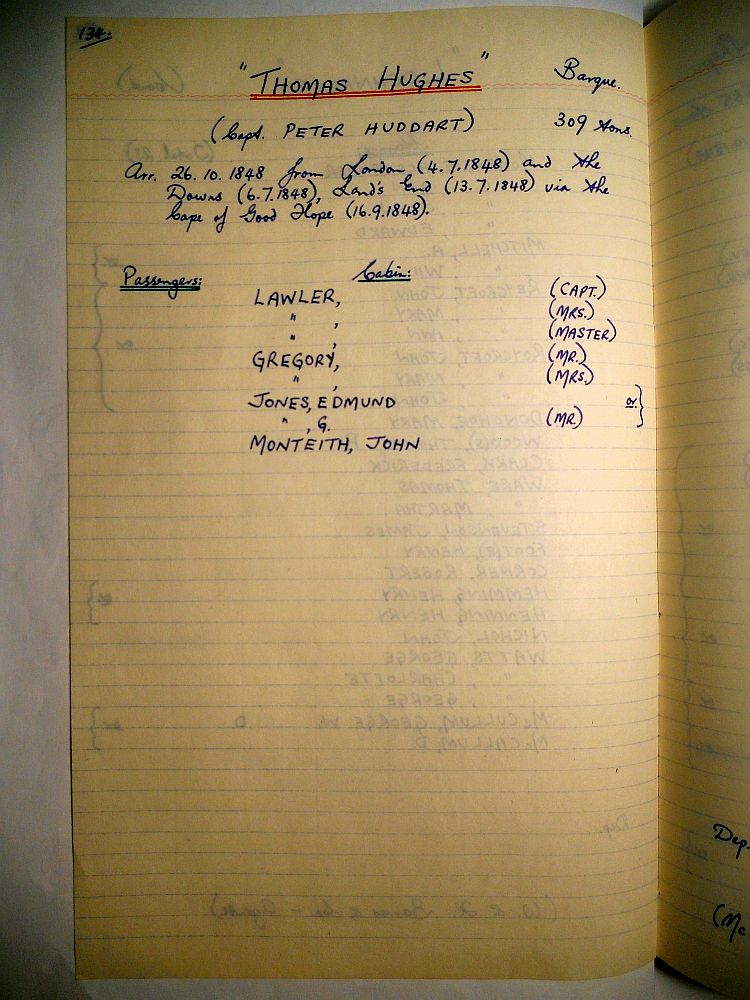 134.
"THOMAS HUGHES" Barque.
(Capt. PETER HUDDART) 309 tons.
Arr. 26.10.1848 from London (4.7.1848) and the
Downs (6.7.1848), Land's End (13.7.1848) via the
Cape of Good Hope (16.9.1848).
Passengers: Cabin:
LAWLER, (CAPT.)
" , (MRS.)
" , (MASTER)
GREGORY, (MR.)
" , (MRS.)
JONES, EDMUND or }
" , G. (MR.)
MONTEITH, JOHN
Dep.
(Mc